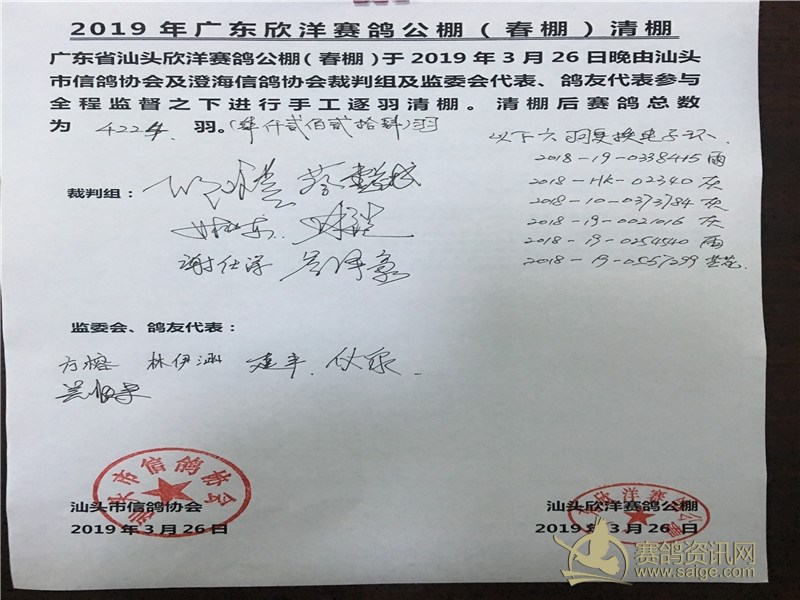 2019年广东欣洋赛鸽公棚（春棚）清棚
广东省汕头欣洋赛鸽公棚（春棚）于2019年3月26日晚由汕头
市信鸽协会及澄海信鸽协会裁判组及监委会代表、鸽友代表参与
全程监督之下进行手工逐羽清棚。清棚后赛鸽总数
为 4224 羽。(肆仟贰佰贰拾肆)羽
以下六羽更换电子环、
2018-19-0338415 雨
2018-HK-02340 灰
2018-10-0373784 灰
2018-19-0021016 灰
2018-19-0254540 雨
2018-19-0557299
裁判组：
谢仕泽
监委会、鸽友代表：
方榕 林伊涵
汕头市信鸽协会
汕头市信鸽协会
2019年3月26日
欣洋赛鸽公棚
汕头欣洋赛鸽公棚
2019年3月26日
赛鸽资讯网
www.saige.com